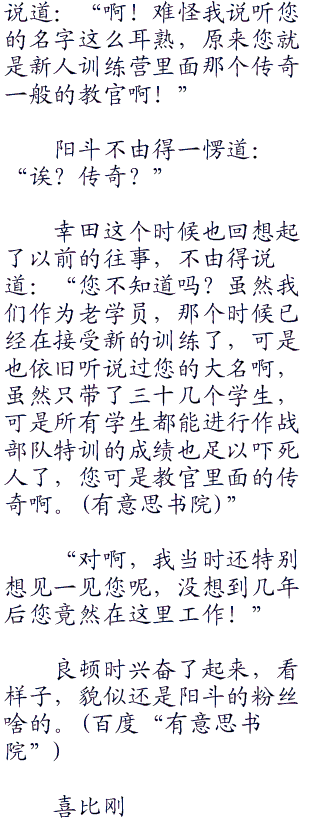 说道：“啊！难怪我说听您
的名字这么耳熟，原来您就
是新人训练营里面那个传奇
一般的教官啊！”
阳斗不由得一愣道：
“诶？传奇？”
幸田这个时候也回想起
了以前的往事，不由得说
道：“您不知道吗？虽然我
们作为老学员，那个时候已
经在接受新的训练了，可是
也依旧听说过您的大名啊，
虽然只带了三十几个学生，
可是所有学生都能进行作战
部队特训的成绩也足以吓死
人了，您可是教官里面的传
奇啊。(有意思书院)”
“对啊，我当时还特别
想见一见您呢，没想到几年
后您竟然在这里工作！”
良顿时兴奋了起来，看
样子，貌似还是阳斗的粉丝
啥的。(百度“有意思书
院”)
喜比刚